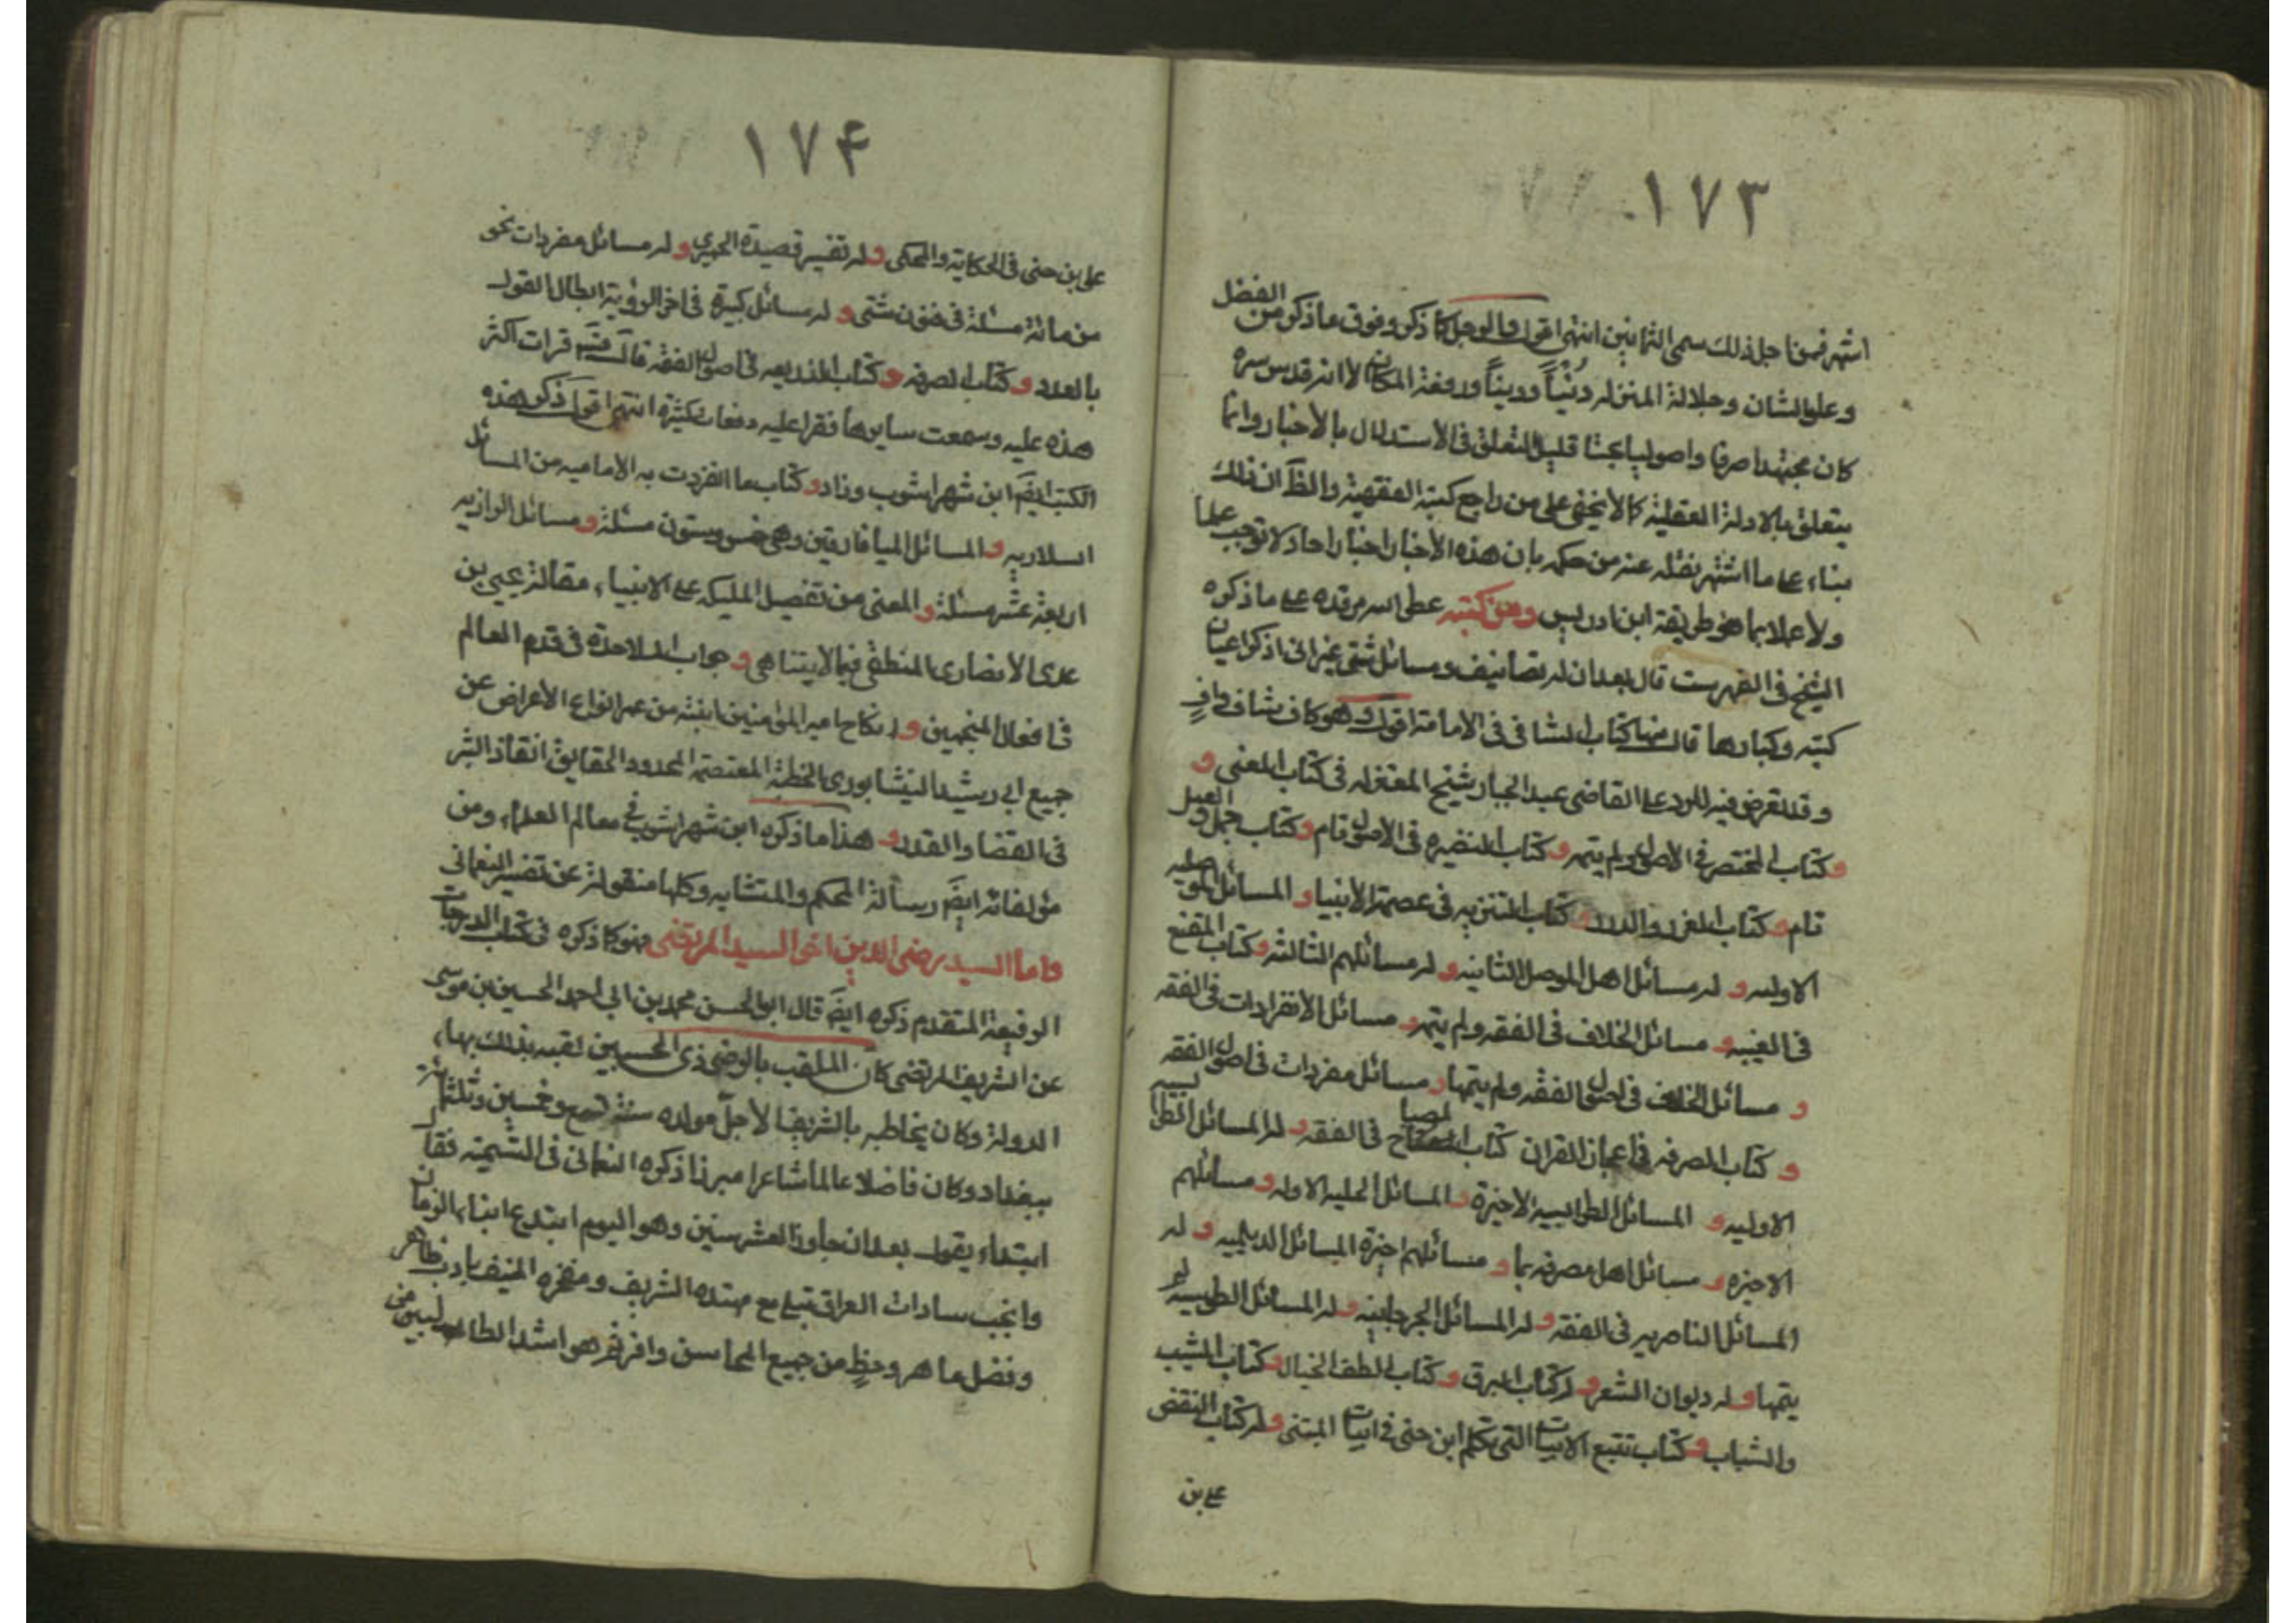 ١٧٣
اشتهر فمن اجل ذلك سمى الثمانين انتهى اقول والرجل كما ذكر وفوق ما ذكر من الفضل
وعلو الشان وجلالة المنزله دنيًا ودينًا ورفعة المكان الا انه قدس سره
كان مجتهدا صرفا واصوليا بحتا قليل التعلق فى الأستدلال بالأخبار وانما
يتعلق بالادلة العقلية كما لا يخفى على من راجع كتبه الفقهية والظ ان ذلك
بناء على ما اشتهر نقله عنه من حكمه بان هذه الأخبار اخبار احاد لا توجب علما
ولا عملا بما هو طريقة ابن ادريس ومن كتبه عطر الله مرقده على ما ذكره
الشيخ فى الفهرست قال بعد ان له تصانيف ومسائل شتى غير انى اذكر اعيان
كتبه وكبارها قال منها كتاب الشافى فى الامامة اقول وهو كاف شاف واف
وقد تعرض فيه للرد على القاضى عبد الجبار شيخ المعتزله فى كتاب المغنى و
وكتاب المختصر فى الاصول ولم يتمه وكتاب الذخيره فى الاصول تام وكتاب جمل العلم و العمل
تام وكتاب الغرر والدرر وكتاب التنزيه فى عصمة الأنبيا والمسائل الموصليه
الاوليه وله مسائل اهل الموصل الثانيه وله مسائلهم الثالثه وكتاب المقنع
فى الغيبه ومسائل الخلاف فى الفقه ولم يتمه ومسائل الأنفرادات فى الفقه
و مسائل الخلاف فى اصول الفقه ولم يتمها ومسائل مفردات فى اصول الفقه
و كتاب الصرفه فى اعجاز القران كتاب المصباح فى الفقه وله المسائل الطرابلسيه
الاوليه و المسائل الطرابلسيه الاخيرة والمسائل الحلبيه الاوله ومسائلهم
الاخيره و مسائل اهل مصر قديما و مسائلهم اخيرة المسائل الديلميه و له
المسائل الناصريه فى الفقه وله المسائل الجرجانيه وله المسائل الطوسيه لم
يتمها وله ديوان الشعر وله كتاب البرق وكتاب الطف الخيال وكتاب الشيب
والشباب وكتاب تتبع الابيات التى تكلم ابن جنى فى ابيات المتنبى وله كتاب النقض
على بن
١٧۴
على بن جنى فى الحكايه والمحكى وله تفسير قصيدة الحميرى وله مسائل مفردات نحو
من مائة مسئلة فى فنون شتى وله مسائل كبيرة فى اخر الرؤية ابطال القول
بالعدد وكتاب الصرفه وكتاب الذريعه فى اصول الفقه قال قرات اكثر
هذه عليه وسمعت سايرها تقرا عليه دفعات كثيرة انتهى اقول ذكر هذه
الكتب ايضَ ابن شهراشوب وزاد وكتاب ما انفردت به الاماميه من المسائل
السلاريه والمسائل الميافارقين وهى خمس وستون مسئلة ومسائل الرازيه
اربعة عشر مسئلة والمعنى من تفضيل الملئكه على الانبياء مقالة يحيى بن
عدى الأنصارى المنطقى فيما لا يتناهى وجواب الملاحدة فى قدم العالم
فى افعال المنجمين و انكاح امير المؤمنين ابنته من عمر انواع الأعراض عن
جميع ابى رشيد النيشابورى الخطبة المقتصه الحدود الحقايق انقاذ البشر
فى القضا والقدر و هذا ما ذكره ابن شهراشوب فى معالم العلماء ومن
مؤلفاته ايضَ رسالة المحكم والمتشابه وكلها منقولة عن تفسير النعمانى
واما السيد رضى الدين اخى السيد المرتضى فهو كما ذكره فى كتاب الدرجات
الرفيعة المتقدم ذكره ايضَ قال ابو الحسن محمد بن ابى احمد الحسين بن موسى
عن الشريف المرتضى كان الملقب بالرضى ذى الحسبين لقبه بذلك بهاء
الدولة وكان يخاطبه بالشريف الأجلّ مولده سنة تسع وخمسين وثلثمائة
ببغداد وكان فاضلا عالما شاعرا مبرزا ذكره الثعالبى فى اليتيمة فقال
ابتداء يقول بعد ان جاوز العشر سنين وهو اليوم ابدع ابناء الزمان
وانجب سادات العراق مع محتده الشريف ومفخره المنيف بادب ظاهر
وفضل باهر وحظٍ من جميع المحاسن وافر ثم هو اشد الطالبيين